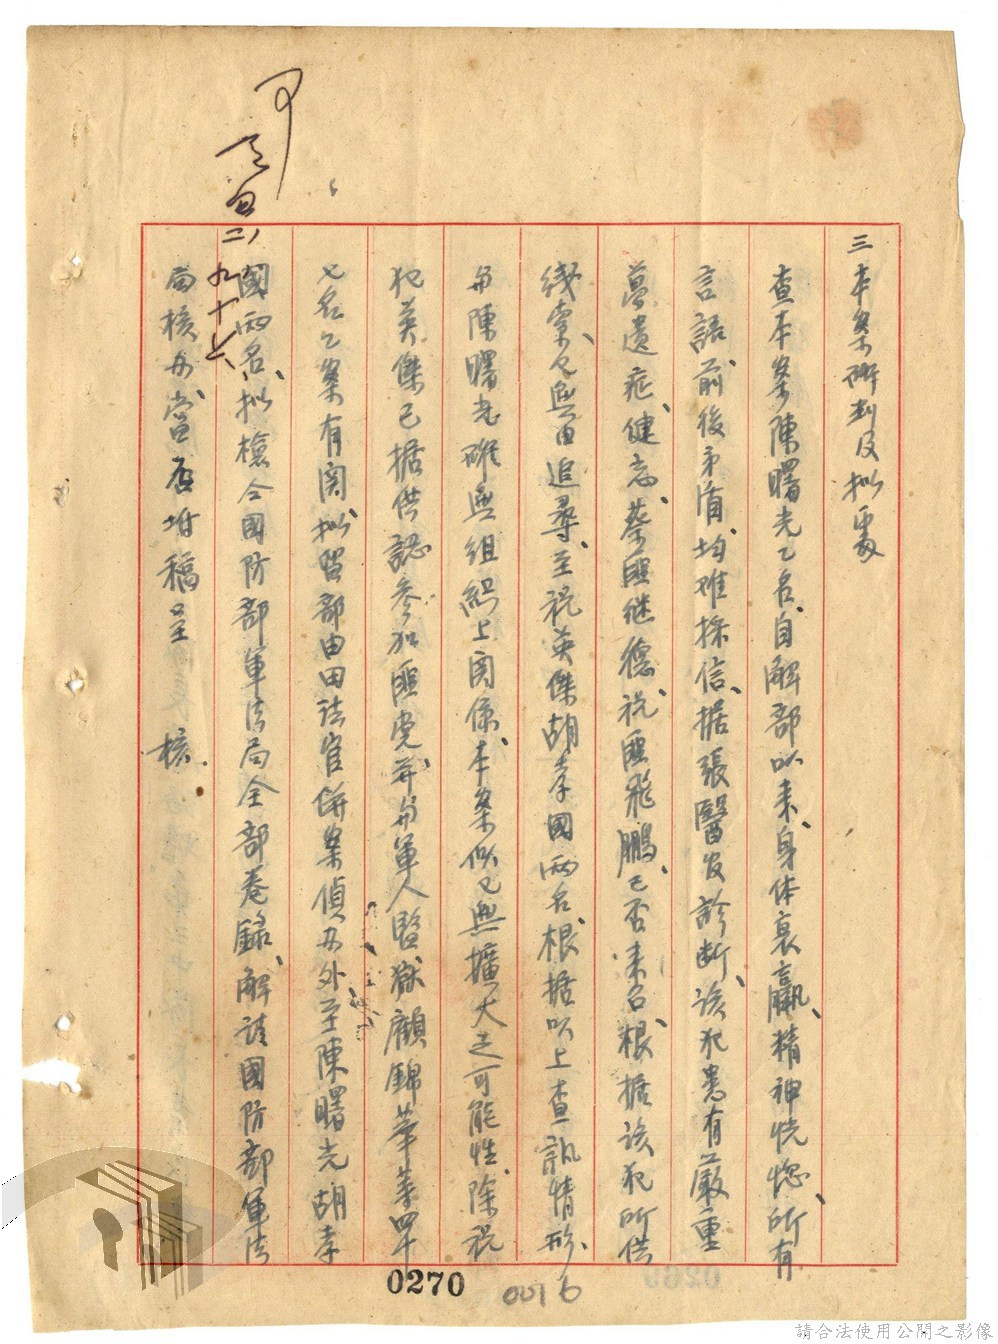 三本案研判及拟處
查本案陳曙光乙名、自解部以来、身体衰羸、精神恍惚、所有
言語、前後矛盾、均难採信、据張醫官診断、该犯患有嚴重
遗症、健忘、蔡匪继德、祝匪飛鹏、已否来台、根据该犯所供
线索、已無由追尋、至祝英傑胡孝國兩名、根据以上查訊情形、
与陳曙光確無組織上関係、本案似已無擴大之可能性、除祝
犯英傑已据供認参加匪党、并与軍人監獄顧錦華等四十
七名乙案有関、拟留部由田法官併案偵办外、至陳曙光胡孝
國兩名、拟檢仝國防部軍法局全部卷錄、解請國防部軍法
局核办、當否附稿呈
核.
可
二
九十六
0270
0016
請合法使用公開之影像